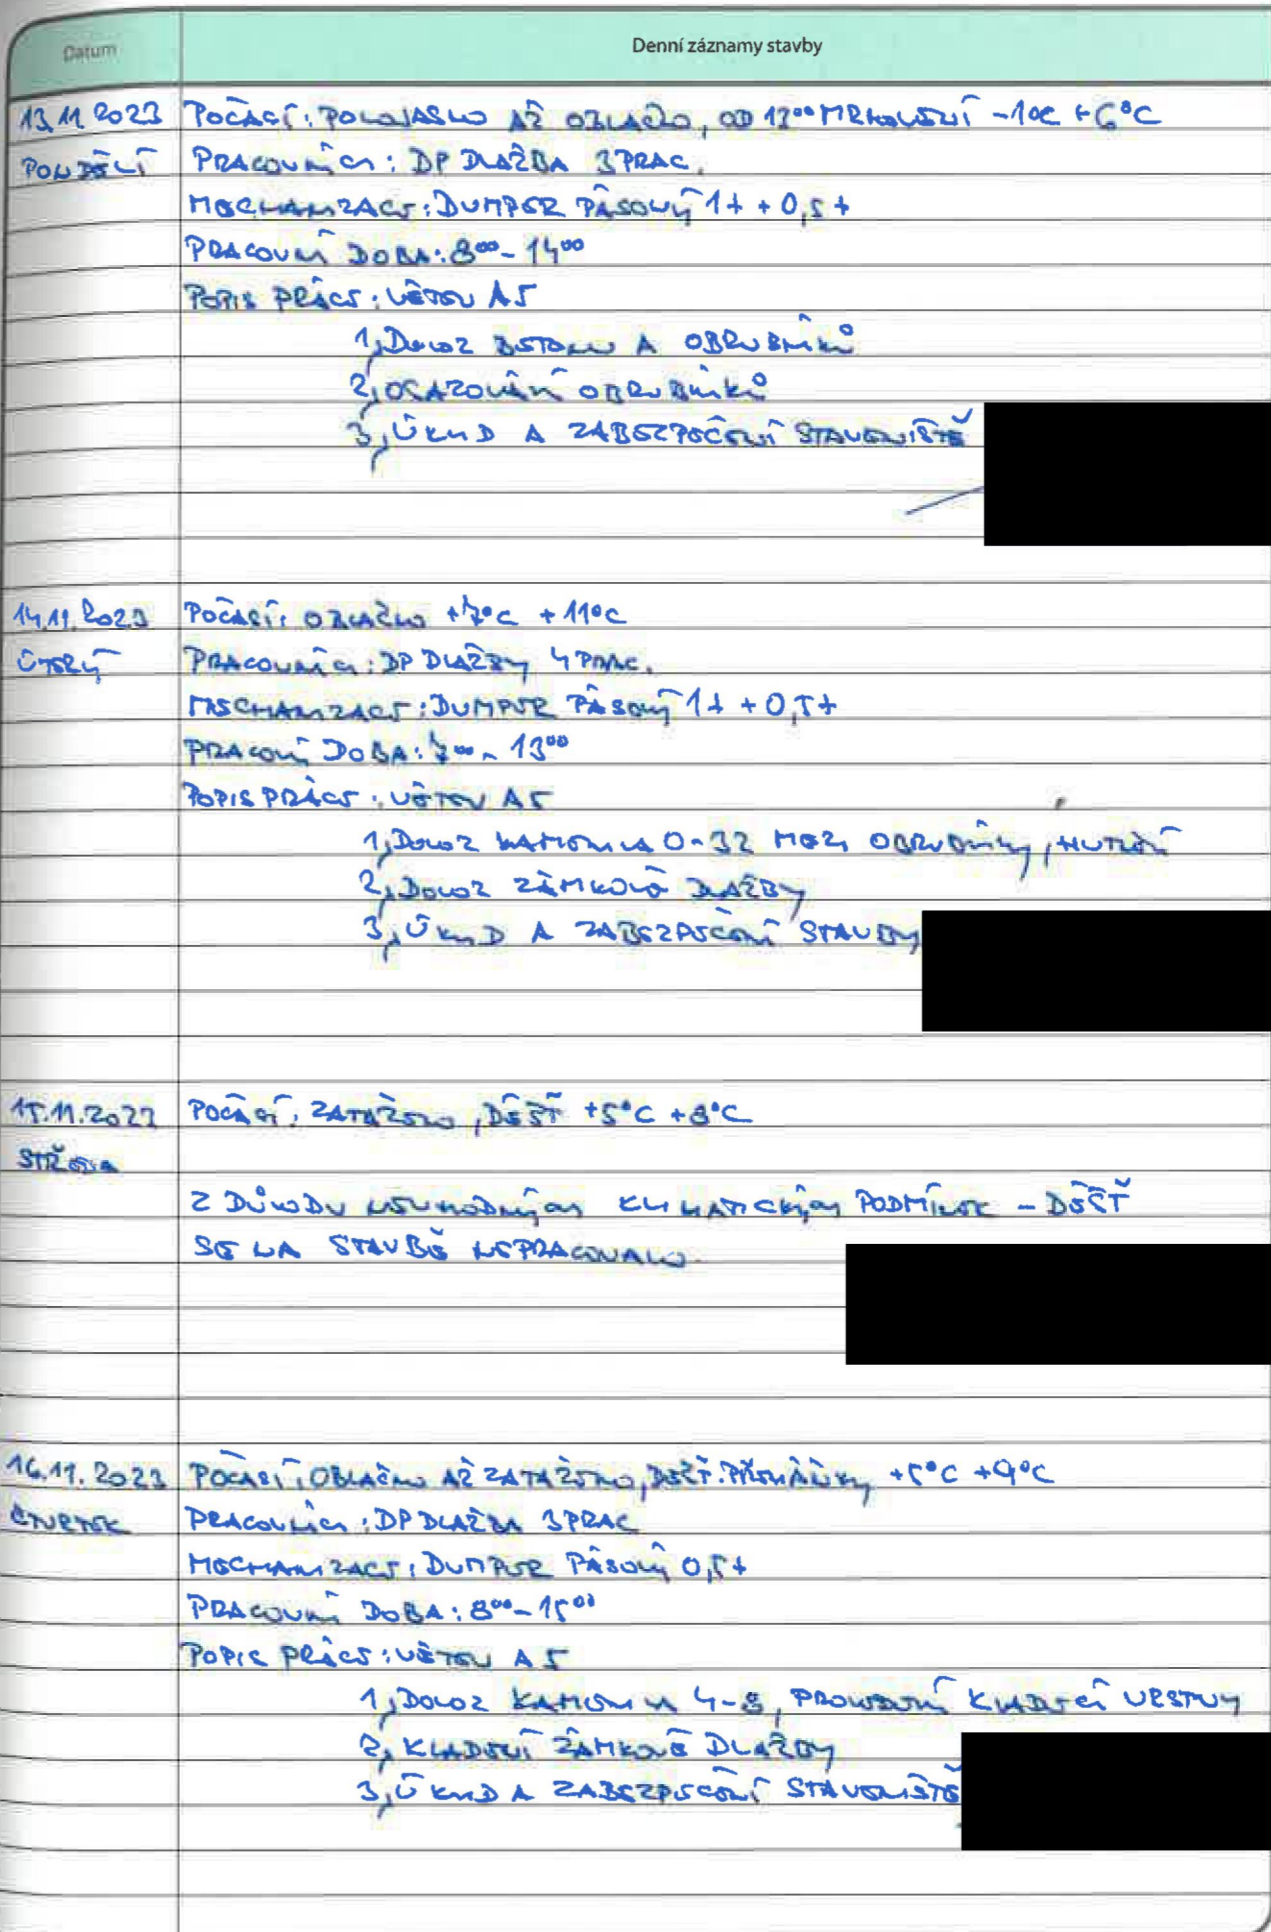 Datum Denní záznamy stavby
13.11.2023 POČASÍ: POLOJASNO AŽ OBLAČNO, OD 12⁰⁰ MRHOLENÍ -1°C +6°C
PONDĚLÍ PRACOVNÍCI: DP DLAŽBA 3 PRAC.
MECHANIZACE: DUMPER PÁSOVÝ 1t + 0,5t
PRACOVNÍ DOBA: 8⁰⁰-14⁰⁰
POPIS PRÁCE: VĚTEV A5
1, DOVOZ BETONU A OBRUBNÍKŮ
2, OSAZOVÁNÍ OBRUBNÍKŮ
3, ÚKLID A ZABEZPEČENÍ STAVENIŠTĚ
14.11.2023 POČASÍ: OBLAČNO +7°C +11°C
ÚTERÝ PRACOVNÍCI: DP DLAŽBY 4 PRAC.
MECHANIZACE: DUMPER PÁSOVÝ 1t + 0,5t
PRACOVNÍ DOBA: 7⁰⁰-13⁰⁰
POPIS PRÁCE: VĚTEV A5
1, DOVOZ KAMENIVA 0-32 MEZI OBRUBNÍKY, HUTNĚNÍ
2, DOVOZ ZÁMKOVÉ DLAŽBY
3, ÚKLID A ZABEZPEČENÍ STAVBY
15.11.2023 POČASÍ: ZATAŽENO, DÉŠŤ +5°C +8°C
STŘEDA
Z DŮVODU NEVHODNÝCH KLIMATICKÝCH PODMÍNEK - DÉŠŤ
SE NA STAVBĚ NEPRACOVALO.
16.11.2023 POČASÍ: OBLAČNO AŽ ZATAŽENO, DÉŠŤ. PŘEHÁŇKY +5°C +9°C
ČTVRTEK PRACOVNÍCI: DP DLAŽBA 3 PRAC
MECHANIZACE: DUMPER PÁSOVÝ 0,5t
PRACOVNÍ DOBA: 8⁰⁰-15⁰⁰
POPIS PRÁCE: VĚTEV A5
1, DOVOZ KAMENIVA 4-8, PROVEDENÍ KLADECÍ VRSTVY
2, KLADENÍ ZÁMKOVÉ DLAŽBY
3, ÚKLID A ZABEZPEČENÍ STAVENIŠTĚ